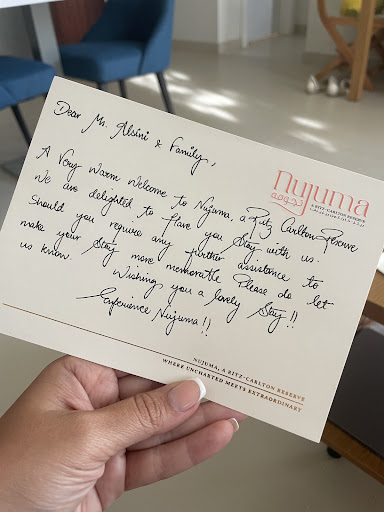 Dear Mr. Alsini & Family,
Nujuma
نجومه
A RITZ-CARLTON RESERVE
A Very Warm Welcome to Nujuma, a Ritz Carlton Reserve
We are delighted to Have you Stay with us.
Should you require any further assistance to
make your Stay more memorable Please do let
us know.
Wishing you a lovely Stay!!
Experience Nujuma!!
NUJUMA, A RITZ-CARLTON RESERVE
WHERE UNCHARTED MEETS EXTRAORDINARY